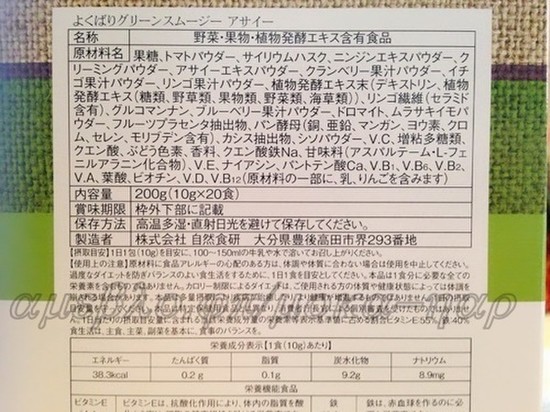 よくばりグリーンスムージー アサイー
名称 野菜・果物・植物発酵エキス含有食品
原材料名 果糖、トマトパウダー、サイリウムハスク、ニンジンエキスパウダー、ク
リーミングパウダー、アサイーエキスパウダー、クランベリー果汁パウダー、イチ
ゴ果汁パウダー、リンゴ果汁パウダー、植物発酵エキス末(デキストリン、植
物発酵エキス(糖類、野草類、果物類、野菜類、海草類))、リンゴ繊維(セラミド
含有)、グルコマンナン、ブルーベリー果汁パウダー、ドロマイト、ムラサキイモパウ
ダー、フルーツプラセンタ抽出物、パン酵母(銅、亜鉛、マンガン、ヨウ素、クロ
ム、セレン、モリブデン含有)、カシス抽出物、シソパウダー、V.C、増粘多糖類、
クエン酸、ぶどう色素、香料、クエン酸鉄Na、甘味料(アスパルテーム・L-フェ
ニルアラニン化合物)、V.E、ナイアシン、パントテン酸Ca、V.B₁、V.B₆、V.B₂、
V.A、葉酸、ビオチン、V.D、V.B₁₂(原材料の一部に、乳、りんごを含みます)
内容量 200g(10g×20食)
賞味期限 枠外下部に記載
保存方法 高温多湿・直射日光を避けて保存してください。
製造者 株式会社 自然食研 大分県豊後高田市界293番地
【摂取目安】1日1包(10g)を目安に、100~150mlの牛乳や水で溶いてお召し上がりください。
【使用上の注意】原材料に食品アレルギーの心配のある方は、体調や体質に合わない場合は使用を中止してください。
過度なダイエットを防ぎバランスのよい食生活をするために、1日1食を目安としてください。本品は1食分に必要な全ての
栄養素を含むものではありません。カロリー制限によるダイエットは、
食生活は、主食、主菜、副菜を基本に、食事のバランスを。
栄養成分表示【1食(10g)あたり】
エネルギー たんぱく質 脂質 炭水化物 ナトリウム
38.3kcal 0.2g 0.1g 9.2g 8.9mg
栄養機能食品
ビタミンE ビタミンEは、抗酸化作用により、体内の脂質 鉄 鉄は、赤血球を作るのに必